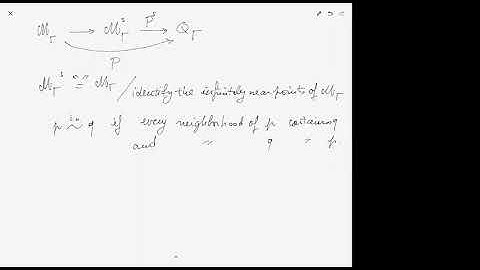 ℳ_Γ → ℳ_Γ^s —P^s→ Q_Γ
P
ℳ_Γ^s "=" ℳ_Γ / identify the infinitely near points of ℳ_Γ
p ~ q if every neighborhood of p contains q
and " q " p